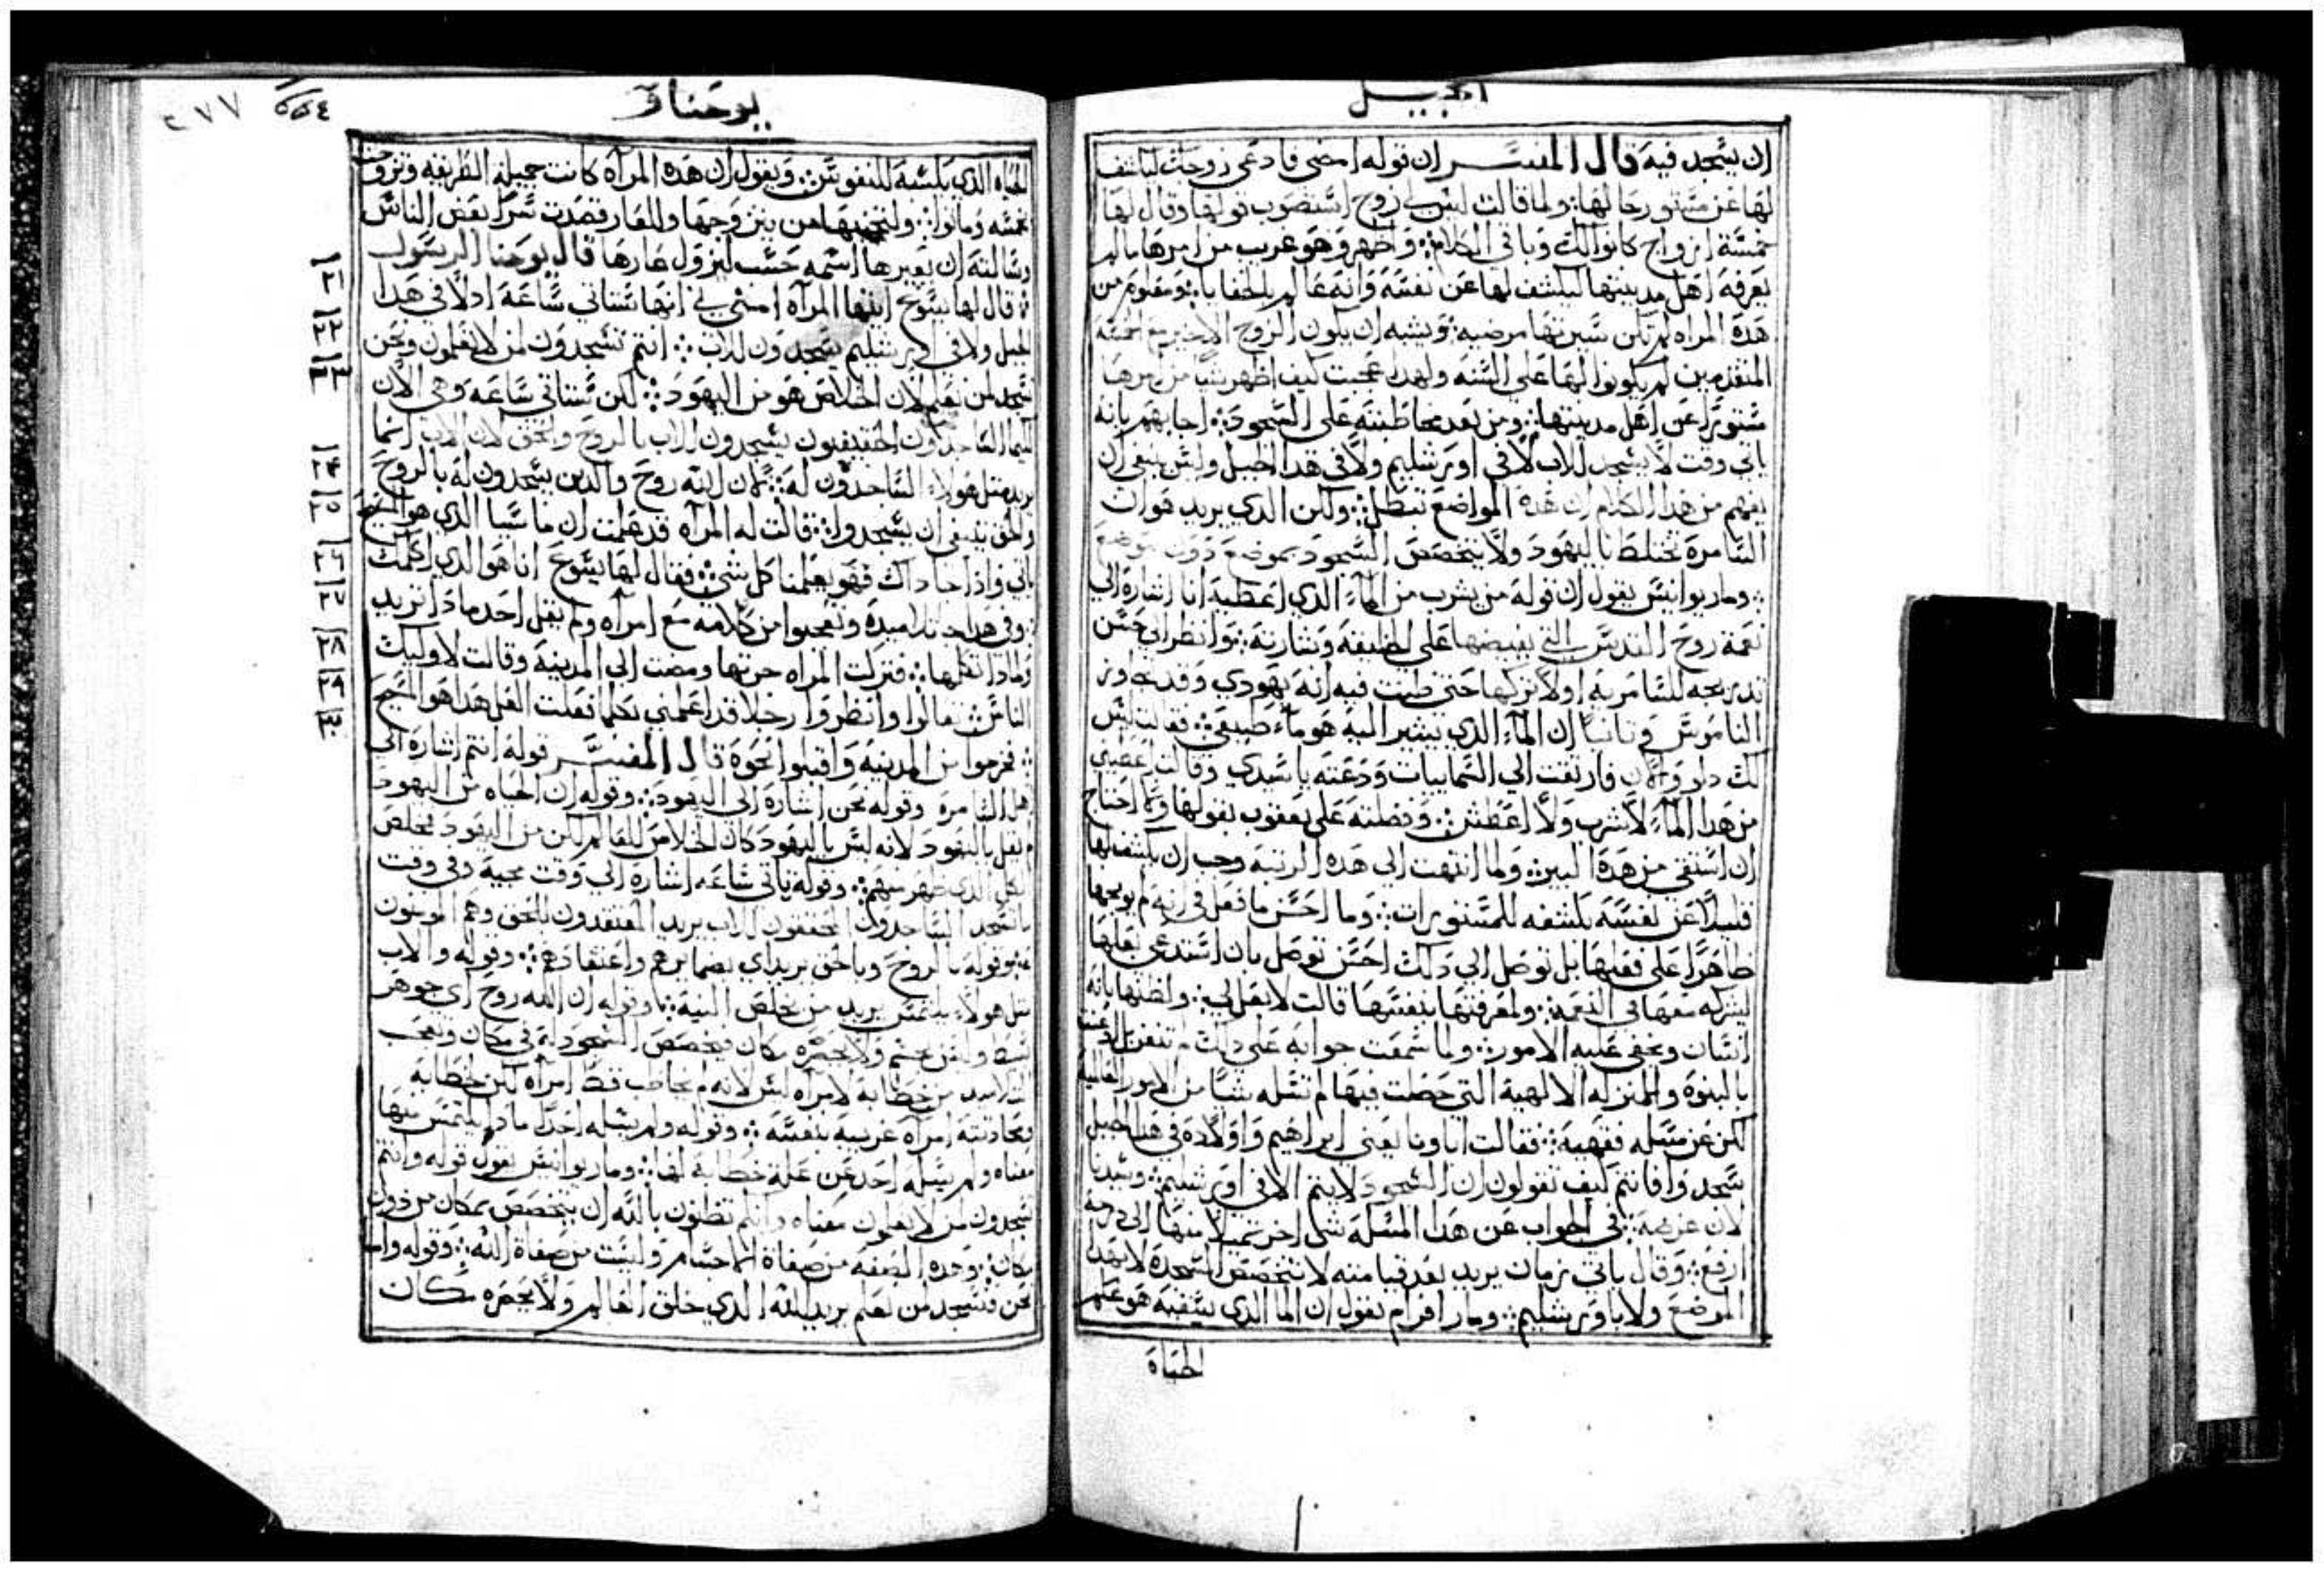 انجيل
ان يسجد فيه قال المفسر ان قوله امضى فادعى زوجك ليكشف
لها عن مستور حالها ولما قالت ليس لي زوج استصوب قولها وقال لها
خمسة ازواج كانوا لك وباقي الكلام وهو غريب من امرها ما لم
يعرفه اهل مدينتها ليكشف لها عن نفسه وانه عالم بالخفايا ومعلوم من
هذه المراه لم تكن سيرتها مرضيه ويشبه ان يكون الزوج الاخير مع الخمسة
المتقدمين لم يكونوا لها على السنه ولهدا عجبت كيف اظهر شيا من امرها
مستورا عن اهل مدينتها ومن بعد مخاطبته على السجود اجابهم بانه
ياتي وقت لا يسجد للاب لا في اورشليم ولا في هدا الجبل وليس ينبغي ان
يفهم من هدا الكلام ان هده المواضع تبطل ولكن الدي يريد هو ان
السامرة تختلط باليهود ولا يتخصص السجود بموضع دون موضع
ومار يوانيس يقول ان قوله من يشرب من الماء الدي اعطيه انا اشارة الى
نعمة روح القدس التي يفيضها على وانظر الى حسن
تدريجه للسامرية اولا تركها حتى ظنت فيه انه يهودي وقد
الناموس وثانيا ان الماء الدي يشير اليه هو ماء فقالت ليس
لك دلو والان فارتقت الى السماييات ودعته يا سيدي وقالت اعطيني
من هدا الماء لاشرب ولا اعطش وفضلته على يعقوب بقولها ولا احتاج
ان استقي من هده البير ولما انتهت الى هده الرتبة وجب ان يكشف لها
قليلا عن نفسه بكشفه للمستورات وما احسن ما فعل في انه لم يوبخها
ظاهرا على فعلها بل توصل الى دلك احسن توصل بان استدعى بعلها
ليشركه معها في النعمة ولمعرفتها بنفسها قالت لا بعل لي ولظنها بانه
انسان وتخفى عليه الامور ولما سمعت جوابه على دلك
بالنبوة والمنزله الالهية التي حصلت فيها لم تسله شيا من الامور العالمية
لكن عن مسله فقهية فقالت اباونا يعني ابراهيم واولاده في هدا الجبل
سجدوا فانتم كيف تقولون ان السجود لا يتم الا في اورشليم وسيدنا
لان غرضه في الجواب عن هدا المسله شي اخر الى درجة
ارفع وقال ياتي زمان يريد بعد قيامته لا تتخصص السجدة لا بهدا
الموضع ولا باورشليم ومار افرام يقول ان الما الدي يسقيه هو علم
الحياة
يوحنا
٢٧٧
الحياه الدي يكسبه للنفوس ويقول ان هده المراه كانت جميلة الطريقه وتزوجت
خمسه وماتوا من يتزوجها وللعار قصدت سرا بعض الناس
وسالته ان يعيرها اسمه حسب ليزول عارها قال يوحنا الرسول
٢١ قال لها يسوع ايتها المراة امني بي انها ستاتي ساعة اد لا في هدا
٢٢ الجبل ولا في اورشليم يسجدون للاب انتم تسجدون لمن لا تعلمون ونحن
٢٣ نسجد لمن نعلم لان الخلاص هو من اليهود لكن ستاتي ساعه وهي الان
كيما الساجدون الحقيقيون يسجدون للاب بالروح والحق لان الاب انما
٢٤ يريد مثل هولاء الساجدون له لان الله روح والدين يسجدون له بالروح
٢٥ والحق ينبغي ان يسجدوا قالت له المراه قد علمت ان ماسيا الدي هو المسيح
٢٦ ياتي فادا جا داك فهو يعلمنا كل شي فقال لها يسوع انا هو الدي اكلمك
٢٧ وفي هدا جا تلاميده وتعجبوا من كلامه مع امراه ولم يقل احد مادا تريد
٢٨ ومادا تكلمها فتركت المراه جرتها ومضت الى المدينة وقالت لاوليك
٢٩ الناس تعالوا وانظروا رجلا قد اعلمني بكلما فعلت العل هدا هو المسيح
٣٠ فخرجوا من المدينه واقبلوا نحوه قال المفسر قوله انتم اشارة الى
اهل السامرة وقوله نحن اشارة الى اليهود وقوله ان الحياه من اليهود
لم يقل باليهود لانه ليس باليهود كان الخلاص للعالم لكن من اليهود تخلص
الكل الدي ظهر منهم وقوله ياتي ساعه اشارة الى وقت مجيه وفي وقت
يسجد الساجدون المحققون للاب يريد المعتقدون بالحق وهم المومنون
وقوله بالروح وبالحق يريد اي بضمايرهم واعتقادهم وقوله والاب
مثل هولاء يلتمس يريد من يخلص النية وقوله ان الله روح اي جوهر
بسيط وليس بجسم ولا يحصره مكان فيخصص السجود له في مكان وتعجب
التلاميد من خطابة لامراه ليس لانه لم يخاطب قط امراه لكن خطابة
ومحادثته امرأه غريبة بنفسه وقوله ولم يسله احدا مادا يلتمس منها
معناه ولم يسله احد عن علة خطابة لها ومار يوانيس يقول قوله وانتم
تسجدون لمن لا تعلمون معناه وانتم تظنون بالله ان يتخصص بمكان من دون
مكان وهده الصفه من صفاة الاجسام وليست من صفاة الله وقوله واما
نحن فنسجد لمن نعلم يريد لله الدي خلق العالم ولا يحصره مكان